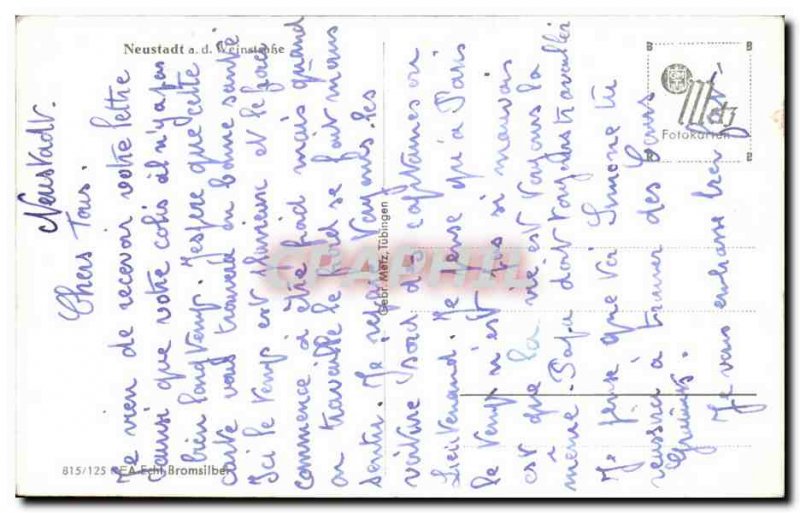 Neustadt a. d. Weinstraße
Neustadt.
Chers Tous.
Je vien de recevoir votre lettre
ainsi que votre colis il n'y a pas
bien longtemp. J'espère que cette
carte vous trouvera en bonne santé
Ici le temps est et le
commence à être froid mais quand
on travaille le froid se fait mans
sentir. Je répare voyants les
voiture soit des capitaines ou
Lieutenand. Je pense qu'a Paris
le temp n'est pas si mauvais
est que la vie est toujours la
même. Papa doit toujours travailler
Je pense que toi Simone tu
reussira à trouver des
Je vous embrasse bien fort
Gebr. Metz, Tübingen
Metz
Fotokarten
815/125 Echt Bromsilber
CPAPHIL